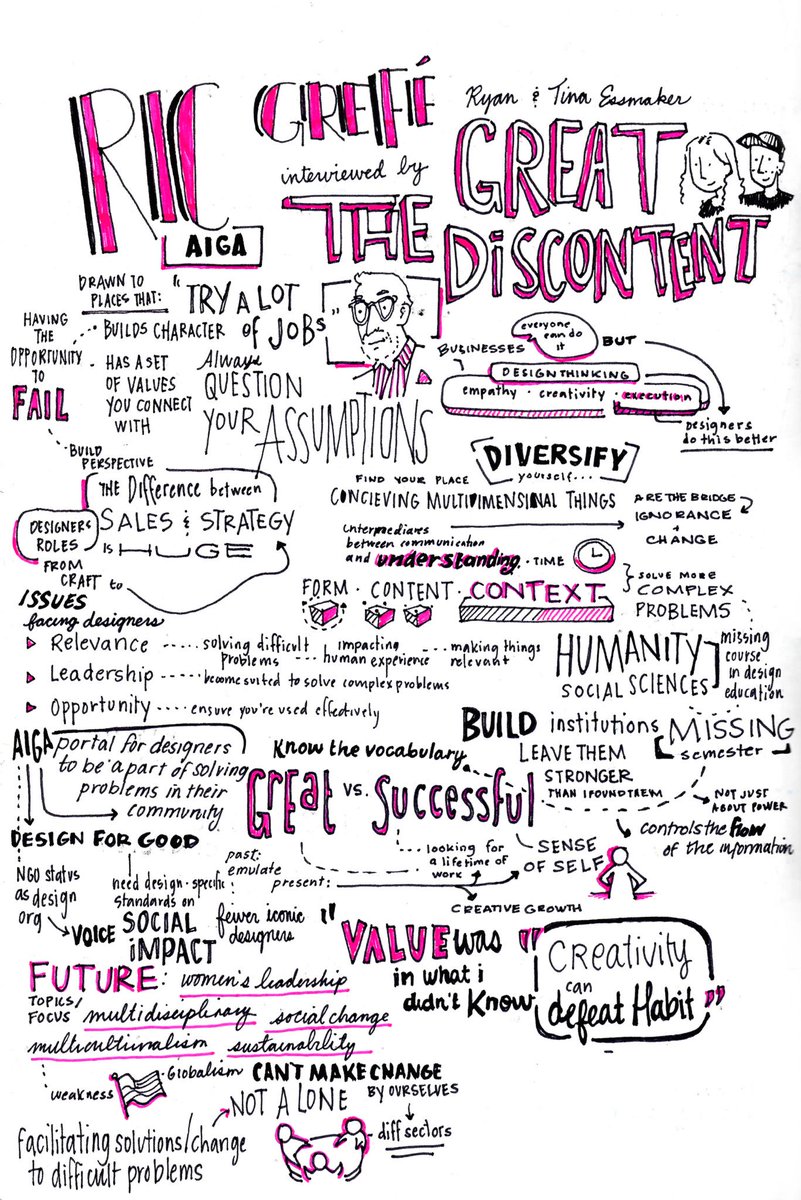 RIC GREFÉ
AIGA
interviewed by
Ryan & Tina Essmaker
THE GREAT
DISCONTENT
DRAWN TO
PLACES THAT:
BUILDS CHARACTER
HAS A SET
OF VALUES
YOU CONNECT
WITH
HAVING
THE
OPPORTUNITY
TO
FAIL
BUILD
PERSPECTIVE
"TRY A LOT
OF JOBS"
Always
QUESTION
YOUR ASSUMPTIONS
everyone
can do
it
BUT
BUSINESSES
DESIGN THINKING
empathy · creativity · execution
Designers
do this better
DIVERSIFY
yourself...
THE Difference between
SALES & STRATEGY
IS HUGE
DESIGNERS
ROLES
FROM
CRAFT to
FIND YOUR PLACE
CONCIEVING MULTIDIMENSIONAL THINGS
ARE THE BRIDGE
IGNORANCE
+
CHANGE
intermediares
between communication
and understanding · TIME
FORM · CONTENT · CONTEXT
SOLVE MORE
COMPLEX
PROBLEMS
ISSUES
facing designers
Relevance ..... solving difficult problems --- impacting human experience --- making things relevant
Leadership ..... become suited to solve complex problems
Opportunity ---- ensure you're used effectively
HUMANITY
SOCIAL SCIENCES
missing
course
in design
education
AIGA portal for designers
to be a part of solving
problems in their
community
Know the vocabulary
BUILD institutions
LEAVE THEM
STRONGER
THAN I FOUND THEM
MISSING
semester
NOT JUST
ABOUT POWER
controls the flow
of the information
Great vs. Successful
DESIGN FOR GOOD
NGO status
as design
org
VOICE
need design-specific
standards on
SOCIAL
IMPACT
past:
emulate
present:
fewer iconic
designers
looking for
a lifetime of
work
SENSE
OF SELF
CREATIVE GROWTH
"VALUE was
in what i
didn't know"
CREATIVITY
can
defeat Habit"
FUTURE: women's leadership
TOPICS/
FOCUS multidisciplinary social change
multiculturalism sustainability
weakness
· Globalism
CAN'T MAKE CHANGE
BY OURSELVES
NOT ALONE
diff sectors
facilitating solutions/change
to difficult problems